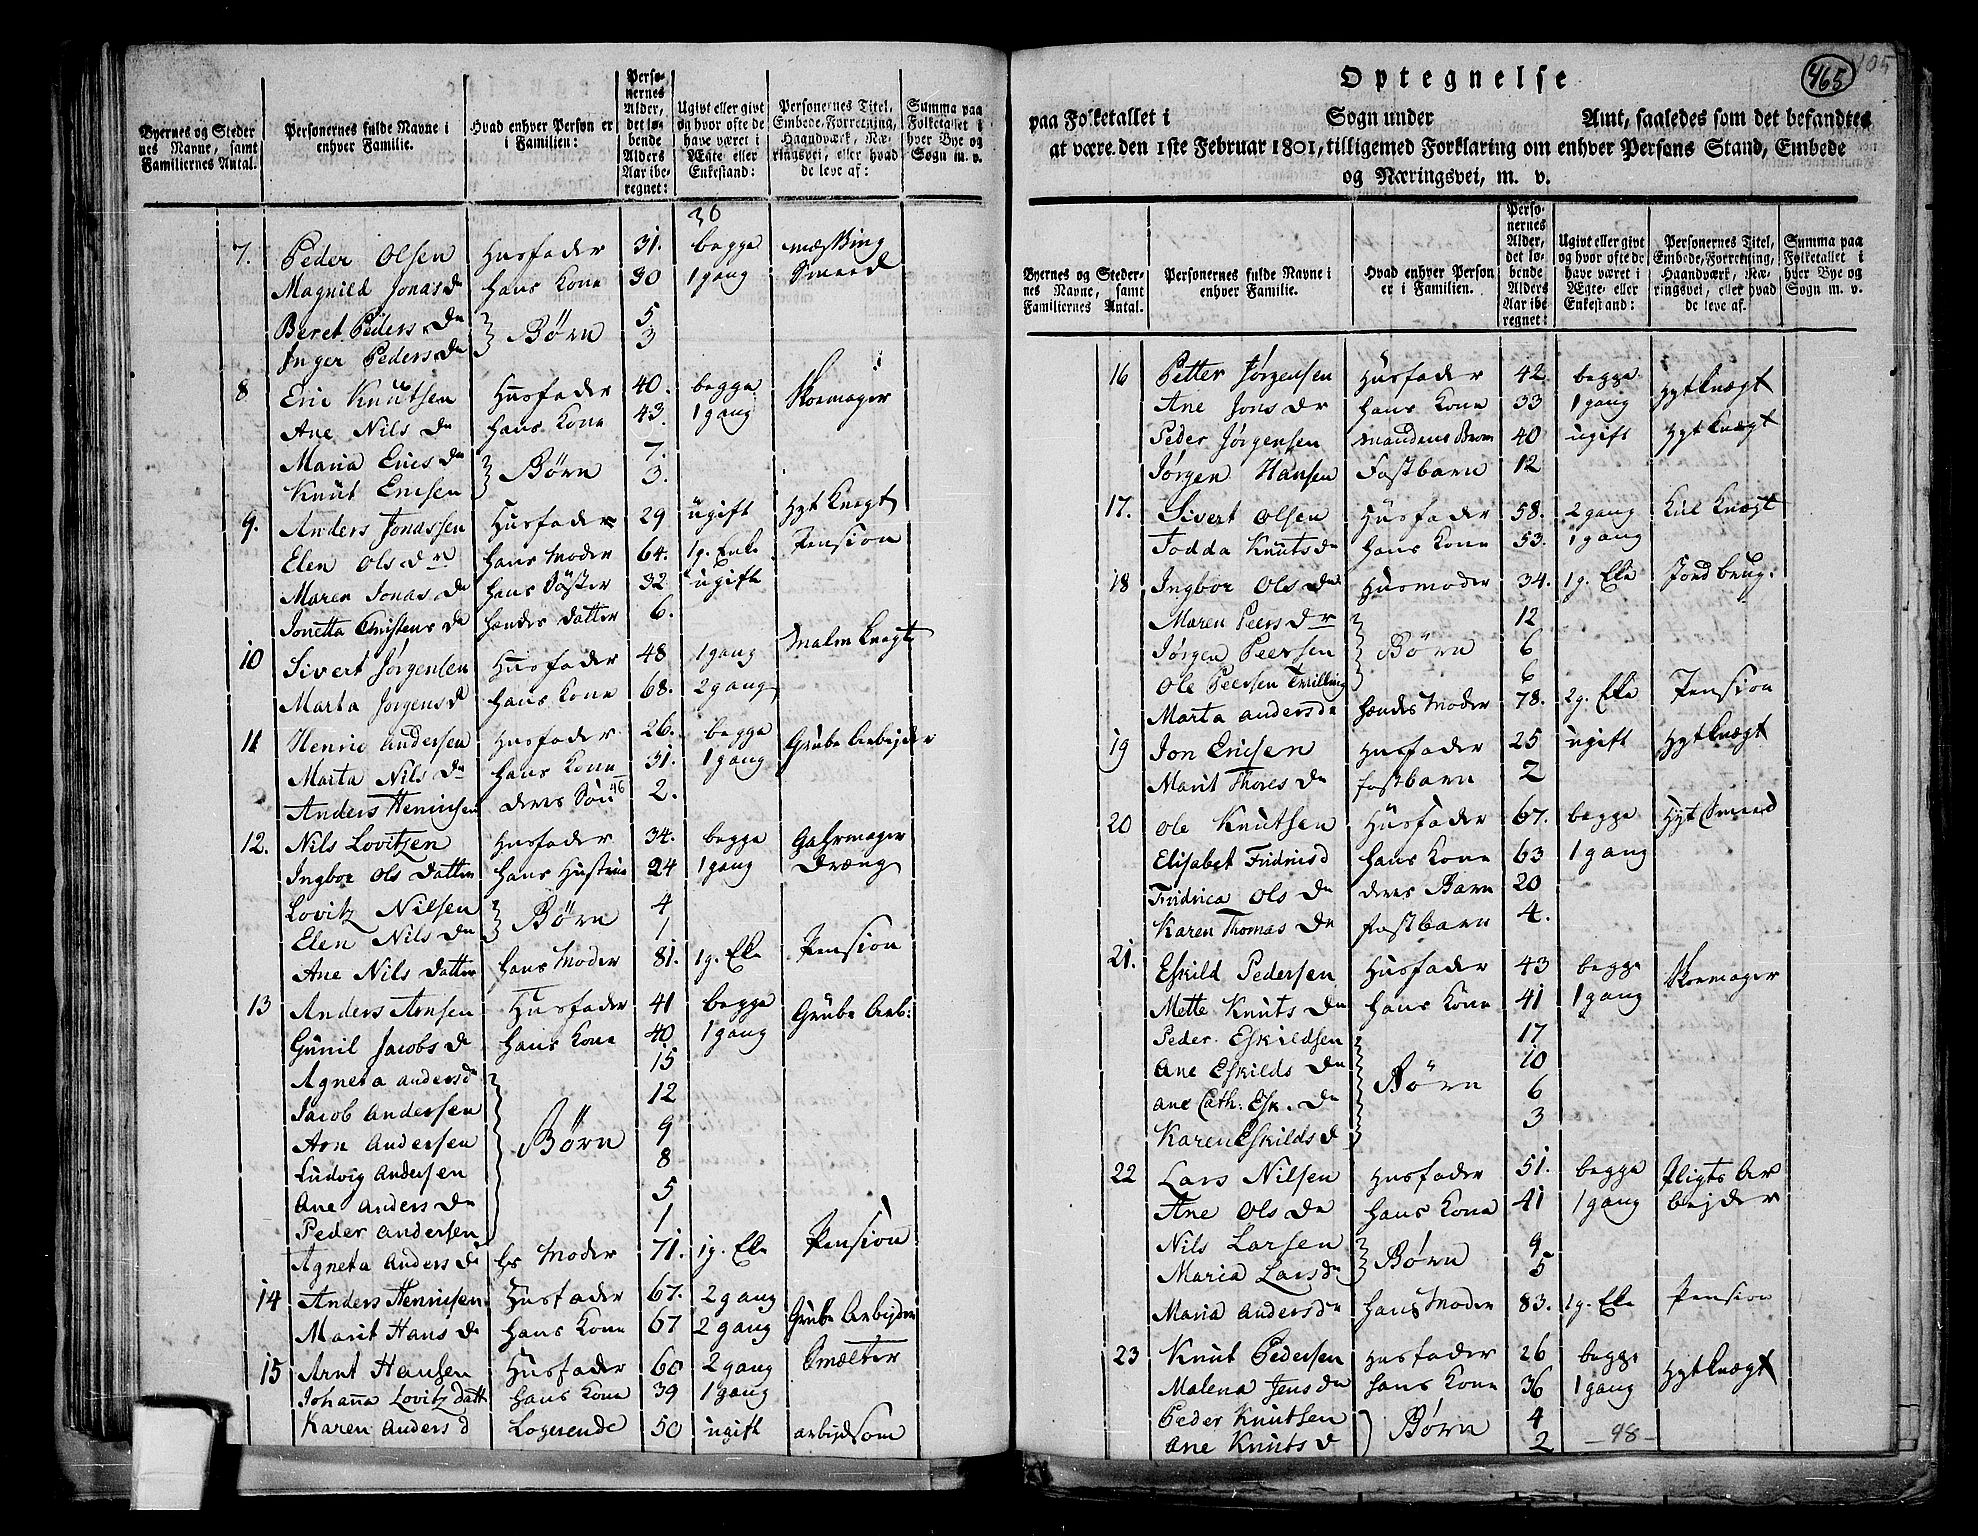 Byernes og Steder
nes Navne, samt
Familiernes Antal.
Personernes fulde Navne i
enhver Familie.
Hvad enhver Person er
i Familien:
Perso-
nernes
Alder,
det lø-
bende
Alders
Aar ibe-
regnet:
Ugivt eller givt
og hvor ofte de
have været i
Ægte eller
Enkestand:
Personernes Titel,
Embede, Forretning,
Haandværk, Næ-
ringsvei, eller hvad
de leve af:
Summa paa
Folketallet i
hver Bye og
Sogn m. v.
36
7. Peder Olsen Husfader 31. begge mæssing
Magnild Jonas Dr hans Kone 30 1 gang Smeed
Beret Peders Dr } Børn 5
Inger Peders Dr 3
8 Eric Knutsen Husfader 40. begge Skomager
Ane Nils Dr hans Kone 43. 1 gang
Maria Erics Dr } Børn 7.
Knut Ericsen 3.
9. Anders Jonassen Husfader 29 ugift Hytknegt
Elen Ols Dr hans Moder 64. 1g. Enke Pension
Maren Jonas Dr hans Søster 32 ugift
Jonetta Christens Dr hendes Datter 6.
10 Sivert Jørgensen Husfader 48 1 gang Malm knegt
Marta Jørgensd hans Kone 68. 2 gang
11 Henric Andersen Husfader 26. begge Grube Arbejder
Marta Nils Dr hans Kone 31. 1 gang
Anders Henricsen deres Søn 46 2.
12. Nils Lovitzen Husfader 34. begge Gahrmager
Ingbor Ols Datter hans Hustrue 24 1 gang Dræng
Lovitz Nilsen } Børn 4
Elen Nils Dr 1
Ane Nils Datter hans Moder 81. 1g. Eke Pension
13 Anders Arnsen Husfader 41 begge Grube Arb:
Gunil Jacobs Dr hans Kone 40 1 gang
Agneta Andersd 15
Jacob Andersen 12
Arn Andersen } Børn 9
Ludvig Andersen 8
Ane Anders Dr 5
Peder Andersen 1
Agneta Anders Dr hs Moder 71. 1g. Eke Pension
14 Anders Henricsen Husfader 67. 2 gang Grube Arbejder
Marit Hans Dr hans Kone 67 2 gang
15 Arnt Hansen Husfader 60 2 gang Smelter
Johanna Lovitz Datt hans Kone 39 1 gang
Karen Anders d Logerende 50 ugift arbejdsom
465
105
Optegnelse
paa Folketallet i Sogn under Amt, saaledes som det befandtes
at være den 1ste Februar 1801, tilligemed Forklaring om enhver Persons Stand, Embede
og Næringsvei, m. v.
Byernes og Steder-
nes Navne, samt
Familiernes Antal.
Personernes fulde Navne i
enhver Familie.
Hvad enhver Person
er i Familien.
Perso-
nernes
Alder,
det lø-
bende
Alders
Aar ibe-
regnet:
Ugivt eller givt
og hvor ofte de
have været i
Ægte- eller
Enkestand:
Personernes Titel,
Embede, Forretning,
Haandværk, Næ-
ringsvei, eller hvad
de leve af.
Summa paa
Folketallet i
hver Bye og
Sogn m. v.
16 Petter Jørgensen Husfader 42 begge Hytknægt
Ane Jons Dr hans Kone 33 1 gang
Peder Jørgensen mandens Broer 40 ugift Hytknægt
Jørgen Hansen Fostbarn 12
17. Sivert Olsen Husfader 58. 2 gang Kul Knægt
Todda Knuts Dr hans Kone 53. 1 gang
18 Ingbor Ols Dr Husmoder 34. 1g. Eke Jord brug.
Maren Peers Dr 12
Jørgen Peersen } Børn 6
Ole Peersen Tvilling 6
Marta Andersdr hendes Moder 78. 2g. Eke Pension
19 Jon Ericsen Husfader 25 ugift Hytknægt
Marit Thores Dr fostbarn 2
20 Ole Knutsen Husfader 67. begge Hyt Smeed
Elisabet Fridricsd hans Kone 63 1 gang
Fridrica Ols Dr deres Barn 20
Karen Thomas Dr fostbarn 4.
21. Eskild Pedersen Husfader 43 begge Skomager
Mette Knuts Dr hans Kone 41 1 gang
Peder Eskildsen 17
Ane Eskilds Dr } Børn 10
Ane Cath. Esk. Dr 6
Karen Eskilds d 3
22 Lars Nilsen Husfader 51. begge Pligts Ar
Ane Ols Dr hans Kone 41 1 gang bejder
Nils Larsen } Børn 9
Maria Larsdr 5
Maria Andersdr hans Moder 83. 1g. Eke Pension
23 Knut Pedersen Husfader 26 begge Hytknægt
Malena Jens Dr hans Kone 36 1 gang
Peder Knutsen } Børn 4
Ane Knuts d 2 — 98 —